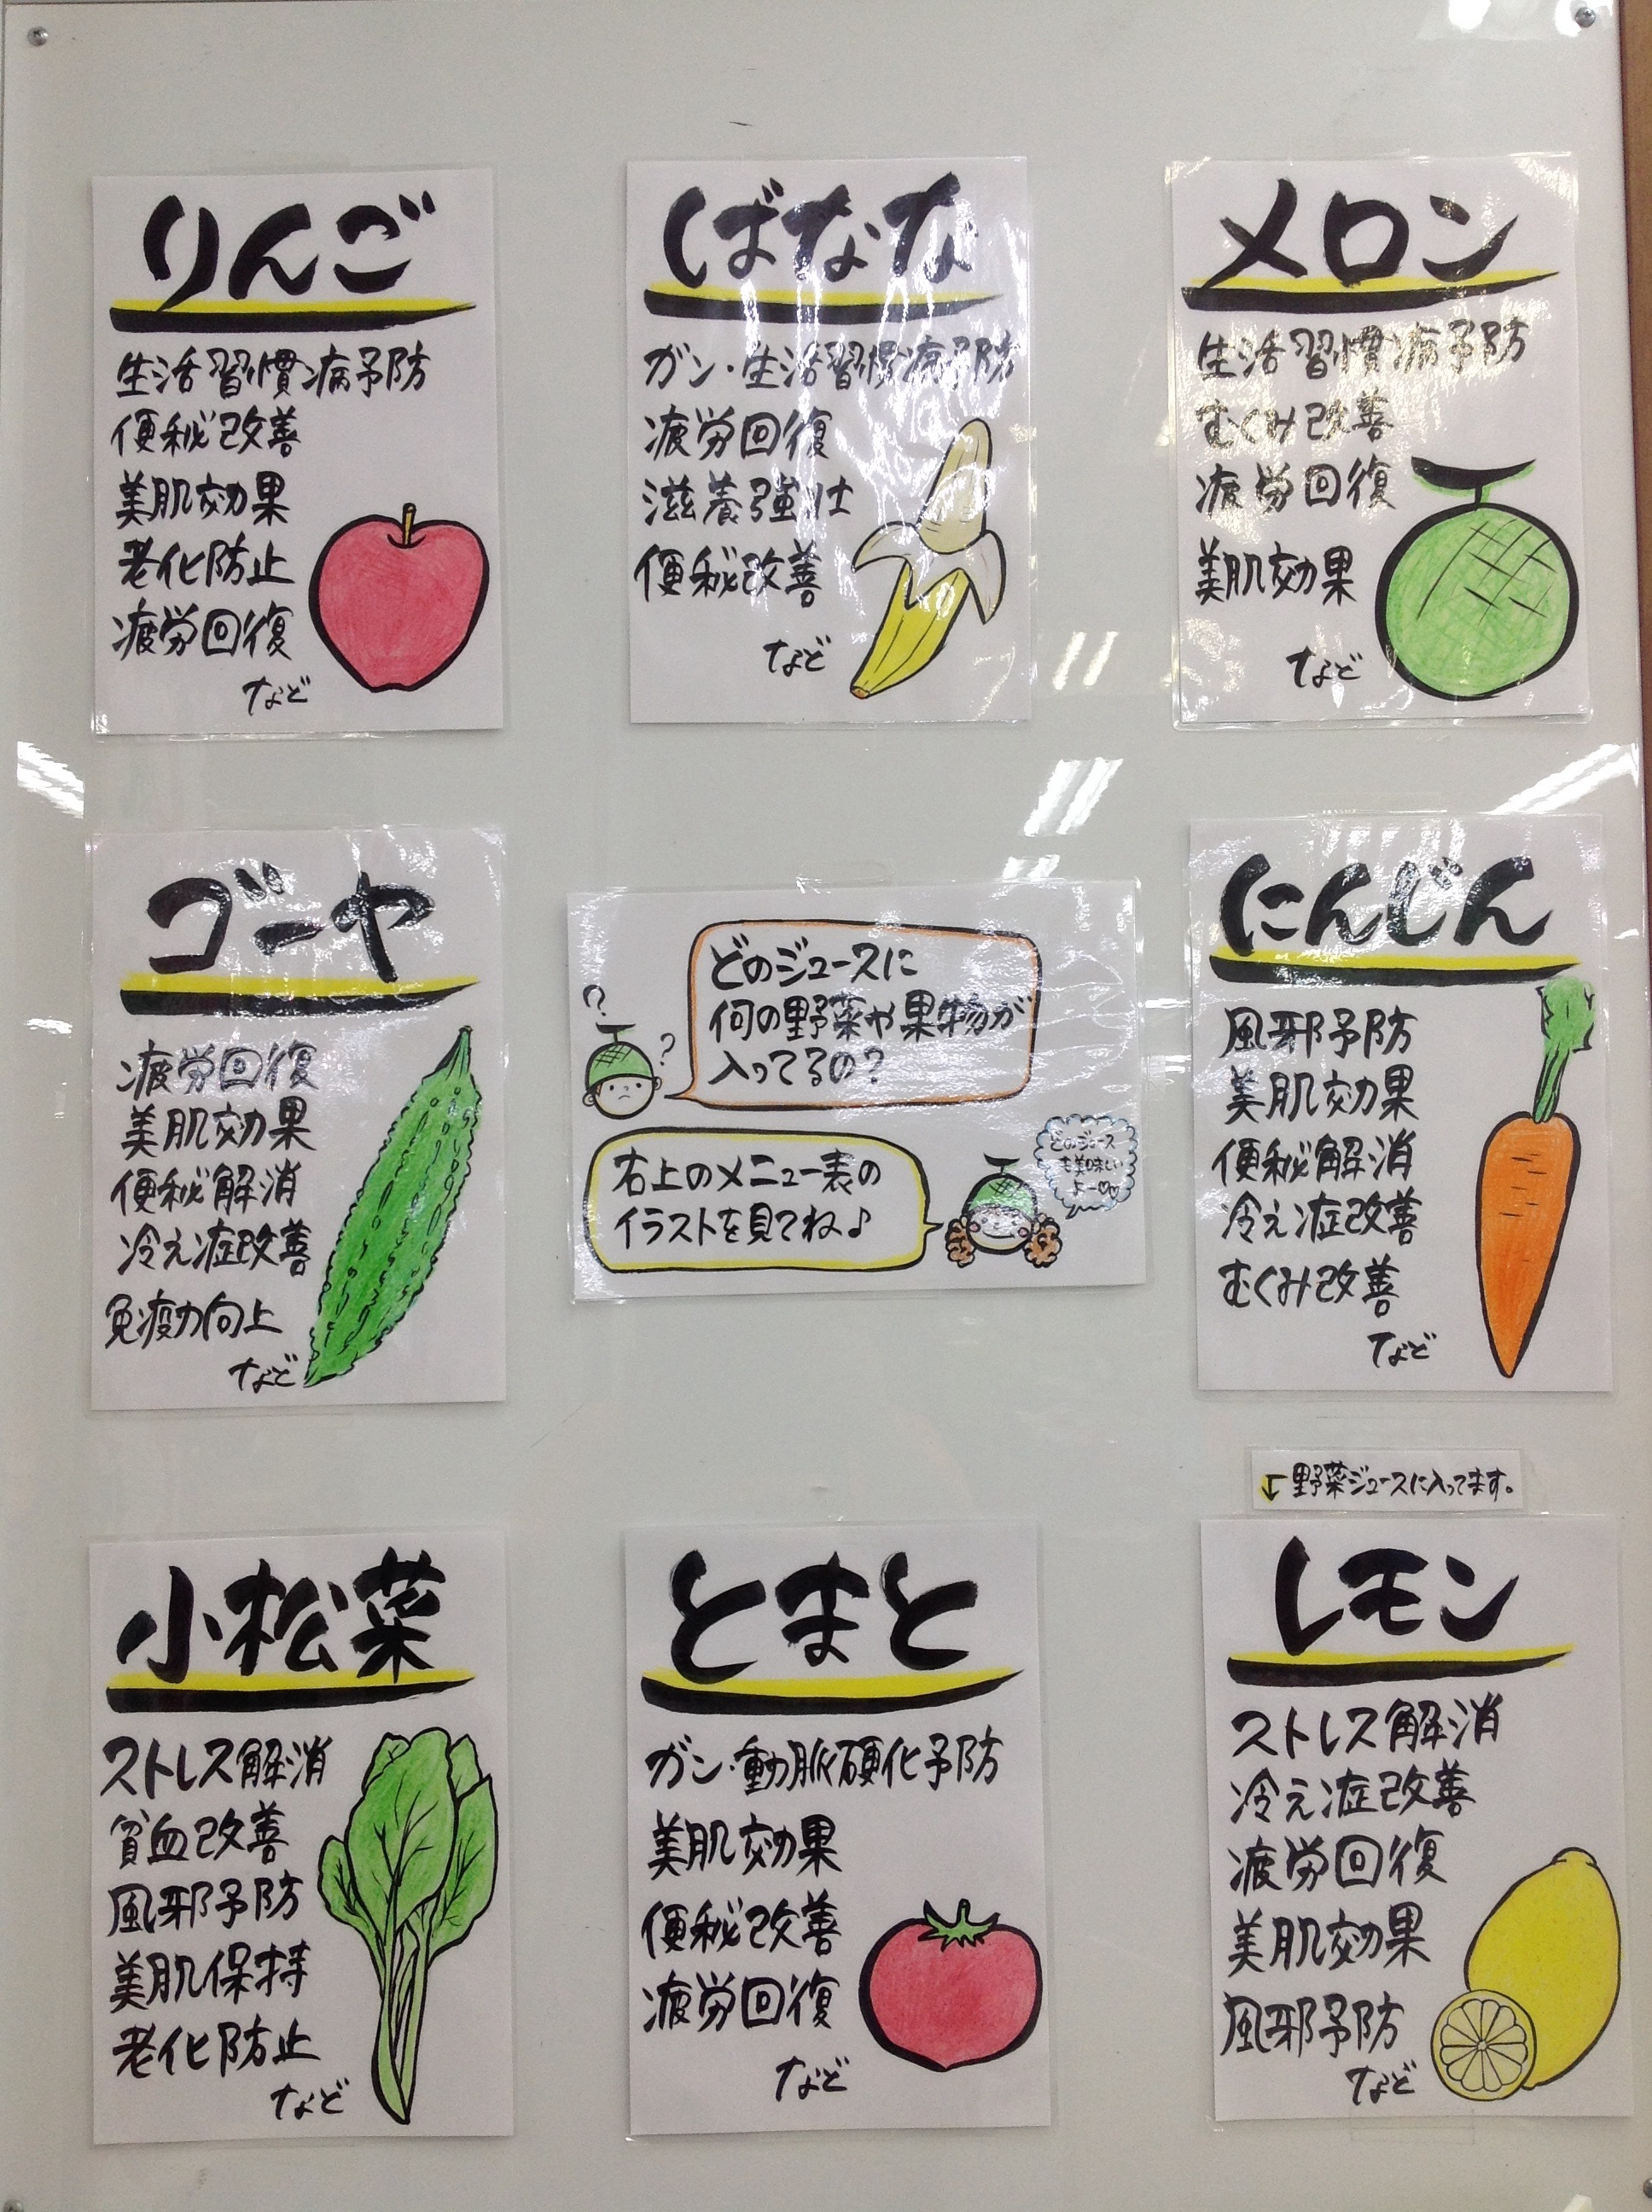 りんご
生活習慣病予防
便秘改善
美肌効果
老化防止
疲労回復
など
ばなな
ガン・生活習慣病予防
疲労回復
滋養強壮
便秘改善
など
メロン
生活習慣病予防
むくみ改善
疲労回復
美肌効果
など
ゴーヤ
疲労回復
美肌効果
便秘解消
冷え症改善
免疫力向上
など
? ?
どのジュースに
何の野菜や果物が
入ってるの?
右上のメニュー表の
イラストを見てね♪
どのジュース
も美味しい
よー♡♡
にんじん
風邪予防
美肌効果
便秘解消
冷え症改善
むくみ改善
など
小松菜
ストレス解消
貧血改善
風邪予防
美肌保持
老化防止
など
とまと
ガン・動脈硬化予防
美肌効果
便秘改善
疲労回復
など
↓野菜ジュースに入ってます。
レモン
ストレス解消
冷え症改善
疲労回復
美肌効果
風邪予防
など